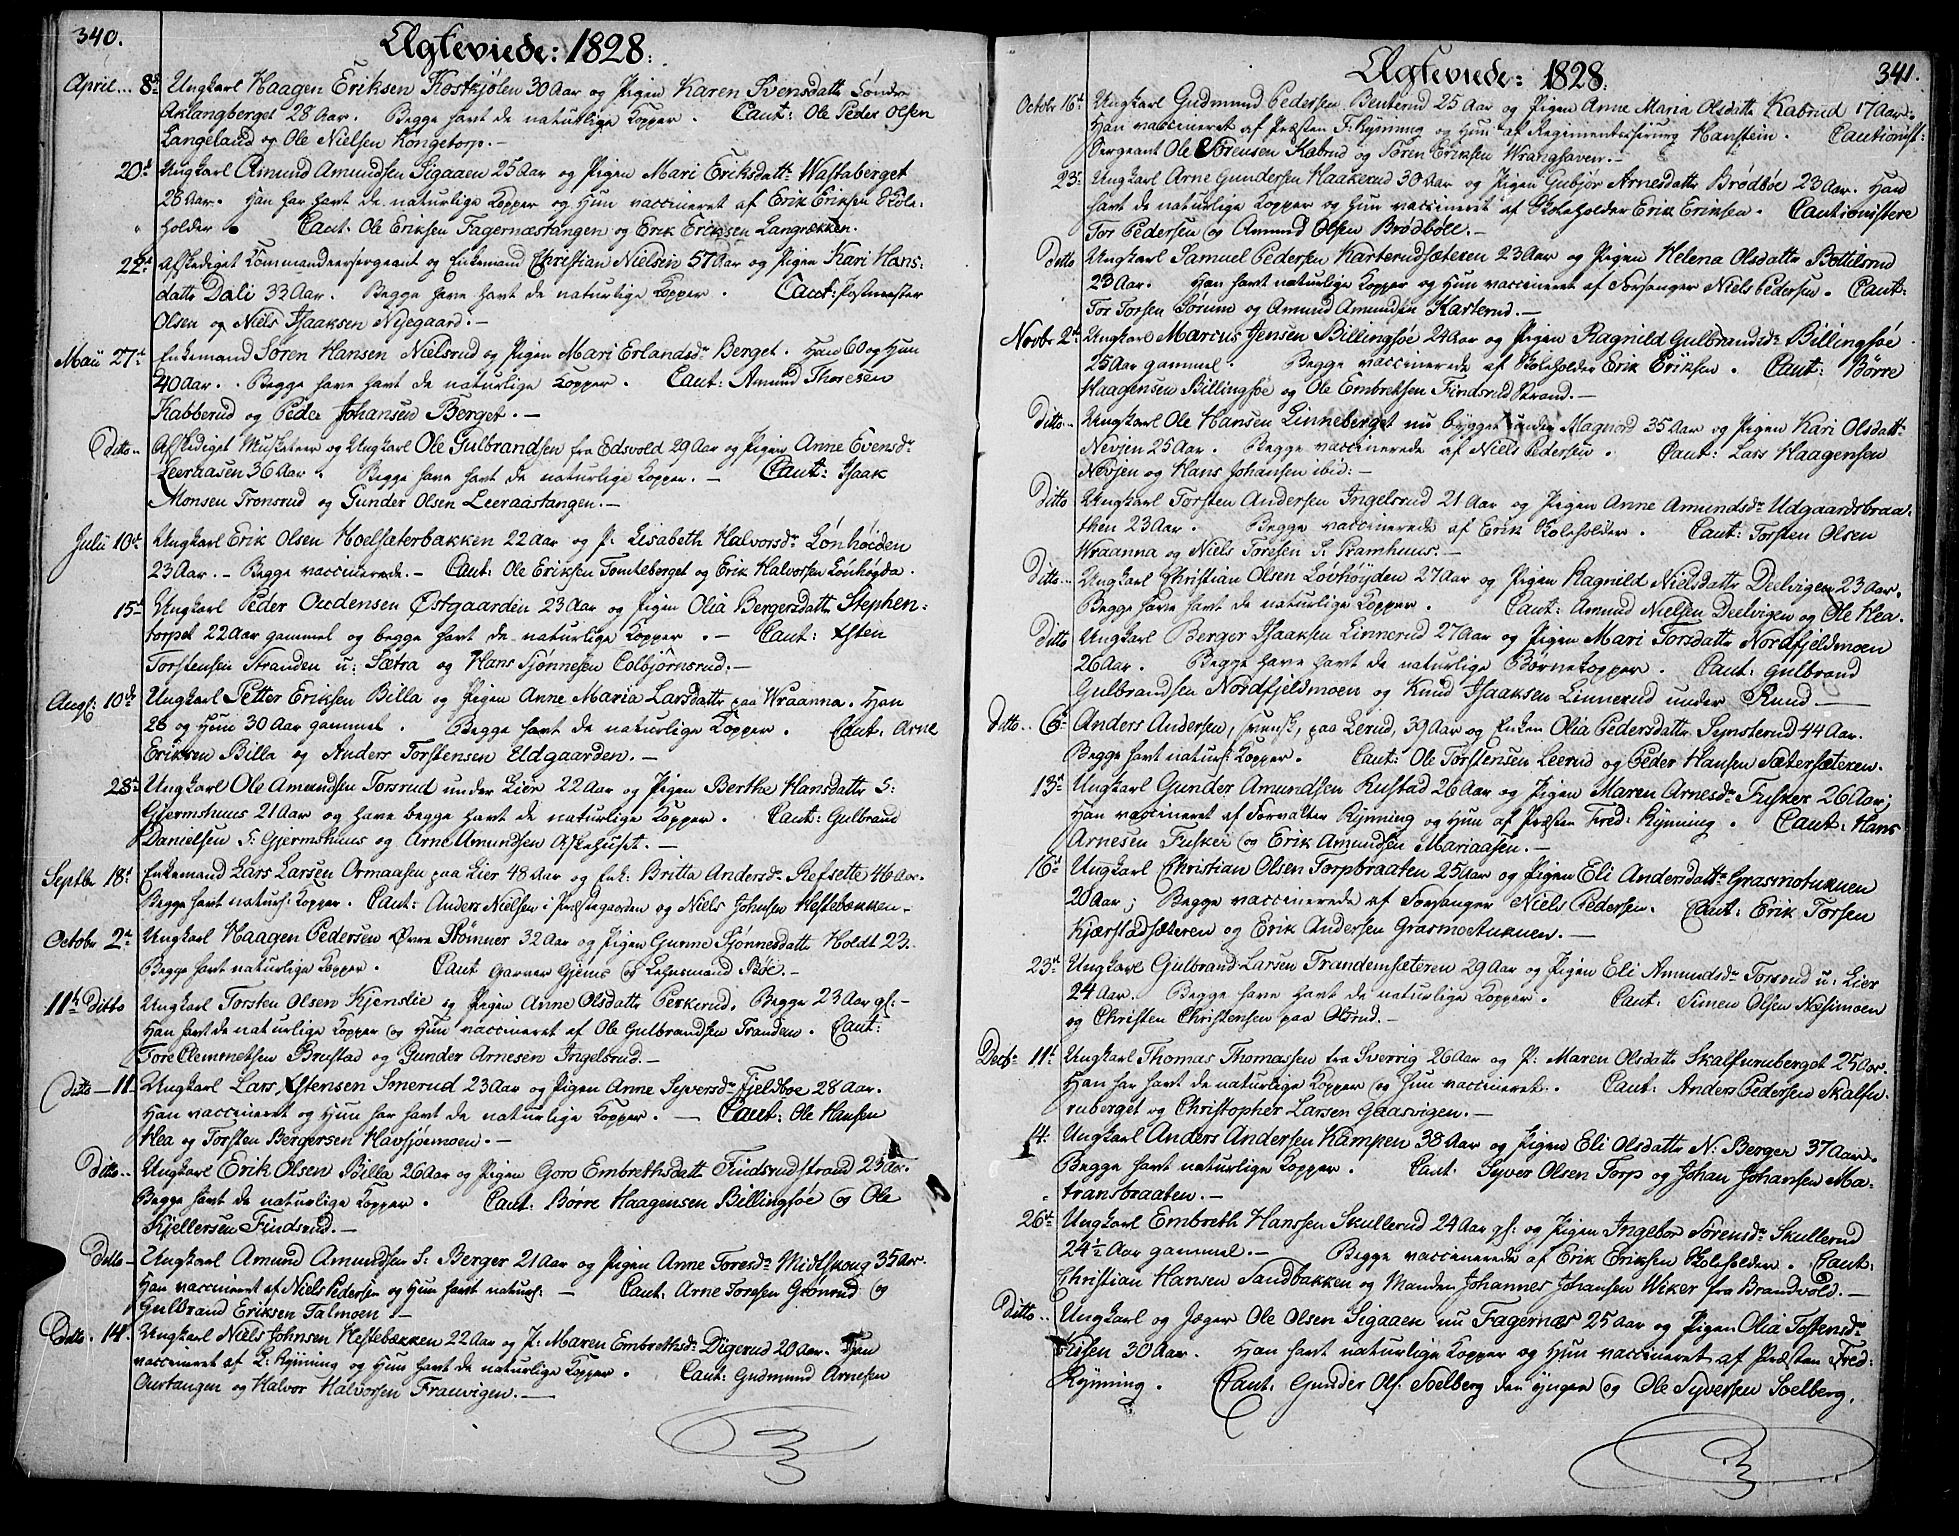 340.
Ægteviede: 1828.
April... 8de Ungkarl Haagen Eriksen Kostkjølen 30 Aar og Pigen Karen Svensdatte Søndre
Aklangberget 28 Aar. Begge havt de naturlige Kopper. Caut: Ole Peder Olsen
Langeland og Ole Nielsen Kongetorp.-
20d Ungkarl Asmund Amundsen Sigaaen 25 Aar og Pigen Mari Eriksdattr Wastaberget
28 Aar. Han har havt de naturlige Kopper og Hun vaccineret af Erik Eriksen Skole:
holder. Caut: Ole Eriksen Fagernæstangen og Erik Eriksen Langrækken.
22d afskediget Commandeersergeant og Enkemand Christian Nielsen 57 Aar og Pigen Kari Hans:
datte Dali 33 Aar. Begge have havt de naturlige Kopper. Caut: Postmester
Olsen og Niels Isaaksen Nyegaard.-
Maii 27d Enkemand Søren Hansen Nielsrud og Pigen Mari Erlandsdr Berget. Han 60 og Hun
40 Aar. Begge have havt de naturlige Kopper. Caut: Amund Thoresen
Kabberud og Peder Johansen Berget.-
Ditto.. Afskediget Musketeer og Ungkarl Ole Gulbrandsen fra Edsvold 29 Aar og Pigen Anne Evensdr
Leeraasen 36 Aar. Begge have havt de naturlige Kopper.- Caut: Isaak
Monsen Tronsrud og Gunder Olsen Leeraastangen.-
Julii 10d Ungkarl Erik Olsen Hoelsæterbakken 22 Aar og P: Lisabeth Halvorsdr Lønhöiden
23 Aar.- Begge vaccinerede.- Caut: Ole Eriksen Tomteberget og Erik Halvorsen Lönhøgda.
15d Ungkarl Peder Oudensen Østgaarden 23 Aar og Pigen Olia Bergersdatte Stephen:
torpet 22 Aar gammel og begge havt de naturlige Kopper.- Caut: Østen
Torstensen Stranden u: Sætra og Hans Tjønnesen Colbjörnsrud.-
Augs: 10de Ungkarl Petter Eriksen Billa og Pigen Anne Maria Larsdatte paa Wraanna. Han
28 og Hun 30 Aar gammel. Begge havt de naturlige Kopper. Caut: Arne
Eriksen Billa og Anders Torstensen Udgaarden.-
28d Ungkarl Ole Amundsen Torsrud under Lier 22 Aar og Pigen Berthe Hansdatte S:
Gjermshuus 21 Aar og have begge havt de naturlige Kopper. Caut: Gulbrand
Danielsen S: Gjermshuus og Arne Amundsen Askehuset.-
Septbr 18d Enkemand Lars Larsen Ormaasen paa Lier 48 Aar og Enk: Britta Andersdr Refsette 46 Aar.
Begge havt naturl: Kopper. Caut: Anders Nielsen i Præstegaarden og Niels Johnsen Hestebækken.
Octobr 2d Ungkarl Haagen Pedersen Øvre Stømner 32 Aar og Pigen Gunne Tjønnesdatte Holdt 23.
Begge havt naturlige Kopper. Caut Garver Gjems og Lehnsmand Böe.-
11te Ditto Ungkarl Torsten Olsen Kjenslie og Pigen Anne Olsdatte Perkerud. Begge 23 Aar gl:-
Han havt de naturlige Kopper og Hun vaccineret af Ole Gulbrandsen Tranden. Caut:
Tore Clemmetsen Brustad og Gunder Arnesen Ingelsrud.-
Ditto-11- Ungkarl Lars Østensen Smerud 23 Aar og Pigen Anne Syversdr Fjeldboe 28 Aar.
Han vaccineret og Hun har havt de naturlige Kopper.- Caut: Ole Hansen
Hea og Torsten Bergersen Havsjöemoen.-
Ditto.. Ungkarl Erik Olsen Billa 26 Aar og Pigen Goro Embrethsdatt Findsrudstrand 23 Aar.
Begge havt de naturlige Kopper. Caut: Borre Haagensen Billingsøe og Ole
Kjellersen Findsrud.-
Ditto- Ungkarl Amund Amundsen S: Berger 21 Aar og Pigen Anne Toresdr Midtskoug 35 Aar.
Han vaccineret af Niels Pedersen og Hun havt naturl:- Caut: Arne Toresen Grønrud og
Gulbrand Eriksen Talmoen.-
Ditto. 14. Ungkarl Niels Johnsen Hestebækken 22 Aar og P: Maren Embrethsdr Digerud 20 Aar. Han
vaccineret af P: Rynning og Hun havt de naturlige Kopper. Caut: Gudmund Arnesen
Ourtangen og Halvor Halvorsen Frauvigen.-
341.
Ægteviede: 1828.
Octobr 16d Ungkarl Gudmund Pedersen Benterud 25 Aar og Pigen Anne Maria Olsdatte Kabrud 17 Aar.
Han vaccineret af Præsten F: Rynning og Hun af Regimentschirurg Hanstein. Cautionist:
Sergeant Ole Sörensen Kabrud og Sören Eriksen Wranghaven.-
23. Ungkarl Arne Gundersen Haakerud 30 Aar og Pigen Gubjør Arnesdatte Brødbøe 23 Aar. Han
havt de naturlige Kopper og Hun vaccineret af Skoleholder Erik Eriksen. Cautionistere
Tor Pedersen og Amund Olsen Brödböll.-
Ditto Ungkarl Samuel Pedersen Karterudsæteren 23 Aar og Pigen Helena Olsdatte Bottilsrud
23 Aar. Han havt naturlige Kopper og Hun vaccineret af Forsanger Niels Pedersen. Caut:
Tor Torsen Sörum og Amund Amundsen Karterud.-
Novbr 2d Ungkarl Marcus Jensen Billingsøe 24 Aar og Pigen Ragnild Gulbrandsdr Billingsøe
25 Aar gammel. Begge vaccinerede af Skoleholder Erik Eriksen. Caut: Børre
Haagensen Billingsøe og Ole Embretsen Findsrud Strand.-
Ditto.. Ungkarl Ole Hansen Linneberget nu bygget under Magnord 35 Aar og Pigen Kari Olsdatt
Nevjen 25 Aar. Begge vaccinerede af Niels Pedersen. Caut: Lars Haagensen
Nevjen og Hans Johansen ibid:-
Ditto Ungkarl Torsten Andersen Ingelsrud 21 Aar og Pigen Anne Amundsdr Udgaardsbraa:
then 23 Aar. Begge vaccinerede af Erik Skoleholder. Caut: Torsten Olsen
Wraanna og Niels Toresen S: Pramhuus.-
Ditto.. Ungkarl Christian Olsen Lövhöyden 27 Aar og Pigen Ragnild Nielsdatte Deelvigen 23 Aar.
Begge have havt de naturlige Kopper. Caut: Amund Nielsen Deelvigen og Ole Hea.
Ditto Ungkarl Berger Isaaksen Linnerud 27 Aar og Pigen Mari Torsdatte Nordfjeldmoen
26 Aar. Begge have havt de naturlige Børnekopper. Caut: Gulbrand
Gulbrandsen Nordfjeldmoen og Knud Isaaksen Linnerud under Rund.-
Ditto.. 6. Anders Andersen, svensk, paa Lerud, 39 Aar og Enken Olia Pedersdatte Sejnsterud 44 Aar.
Begge havt naturl: Kopper. Caut: Ole Torstensen Leerud og Peder Hansen Sætersæteren.
13d Ungkarl Gunder Amundsen Rustad 26 Aar og Pigen Maren Arnesdr Fusker 26 Aar;
Han vaccineret af Forvalter Rynning og Hun af Præsten Fred: Rynning. Caut: Hans
Arnesen Fusker og Erik Amundsen Mariaasen.-
16d Ungkarl Christian Olsen Torpbraaten 25 Aar og Pigen Eli Andersdattr Grasmotuknen
20 Aar; Begge vaccinerede af Forsanger Niels Pedersen. Caut: Erik Torsen
Kjærstadsæteren og Erik Andersen Grasmoetuknen.-
23d Ungkarl Gulbrand Larsen Trandemsæteren 29 Aar og Pigen Eli Amundsdr Torsrud u: Lier
24 Aar. Begge have havt de naturlige Kopper. Caut: Simen Olsen Næsimoen
og Christen Christensen paa Ostrud.-
Decbr 11d Ungkarl Thomas Thomassen fra Sverrig 26 Aar og P: Maren Olsdatte Skalfuruberget 25 Aar.
Han har havt de naturlige Kopper og Hun vaccineret. Caut: Anders Pedersen Skalfu:
ruberget og Christopher Larsen Gaasvigen.-
14. Ungkarl Anders Andersen Kampen 38 Aar og Pigen Eli Olsdatte N: Berger 37 Aar.
Begge havt naturlige Kopper. Caut. Syver Olsen Torp og Johan Johansen Ma:
transbraaten.-
26d Ungkarl Embreth Hanssen Skullerud 24 Aar gl: og Pigen Ingebor Sorensdr Skullerud
24½ Aar gammel.- Begge vaccinerede af Erik Eriksen Skoleholder. Caut:
Christian Hansen Sandbakken og Manden Johannes Johansen Wiker fra Brandvold.-
Ditto.. Ungkarl og Jæger Ole Olsen Sigaaen nu Fagernæs 25 Aar og Pigen Olia Tostensdr
Kiisen 30 Aar. Han havt naturlige Kopper og Hun vaccineret af Præsten Fred:
Rynning. Caut: Gunder Ols: Soelberg den yngre og Ole Syversen Soelberg.